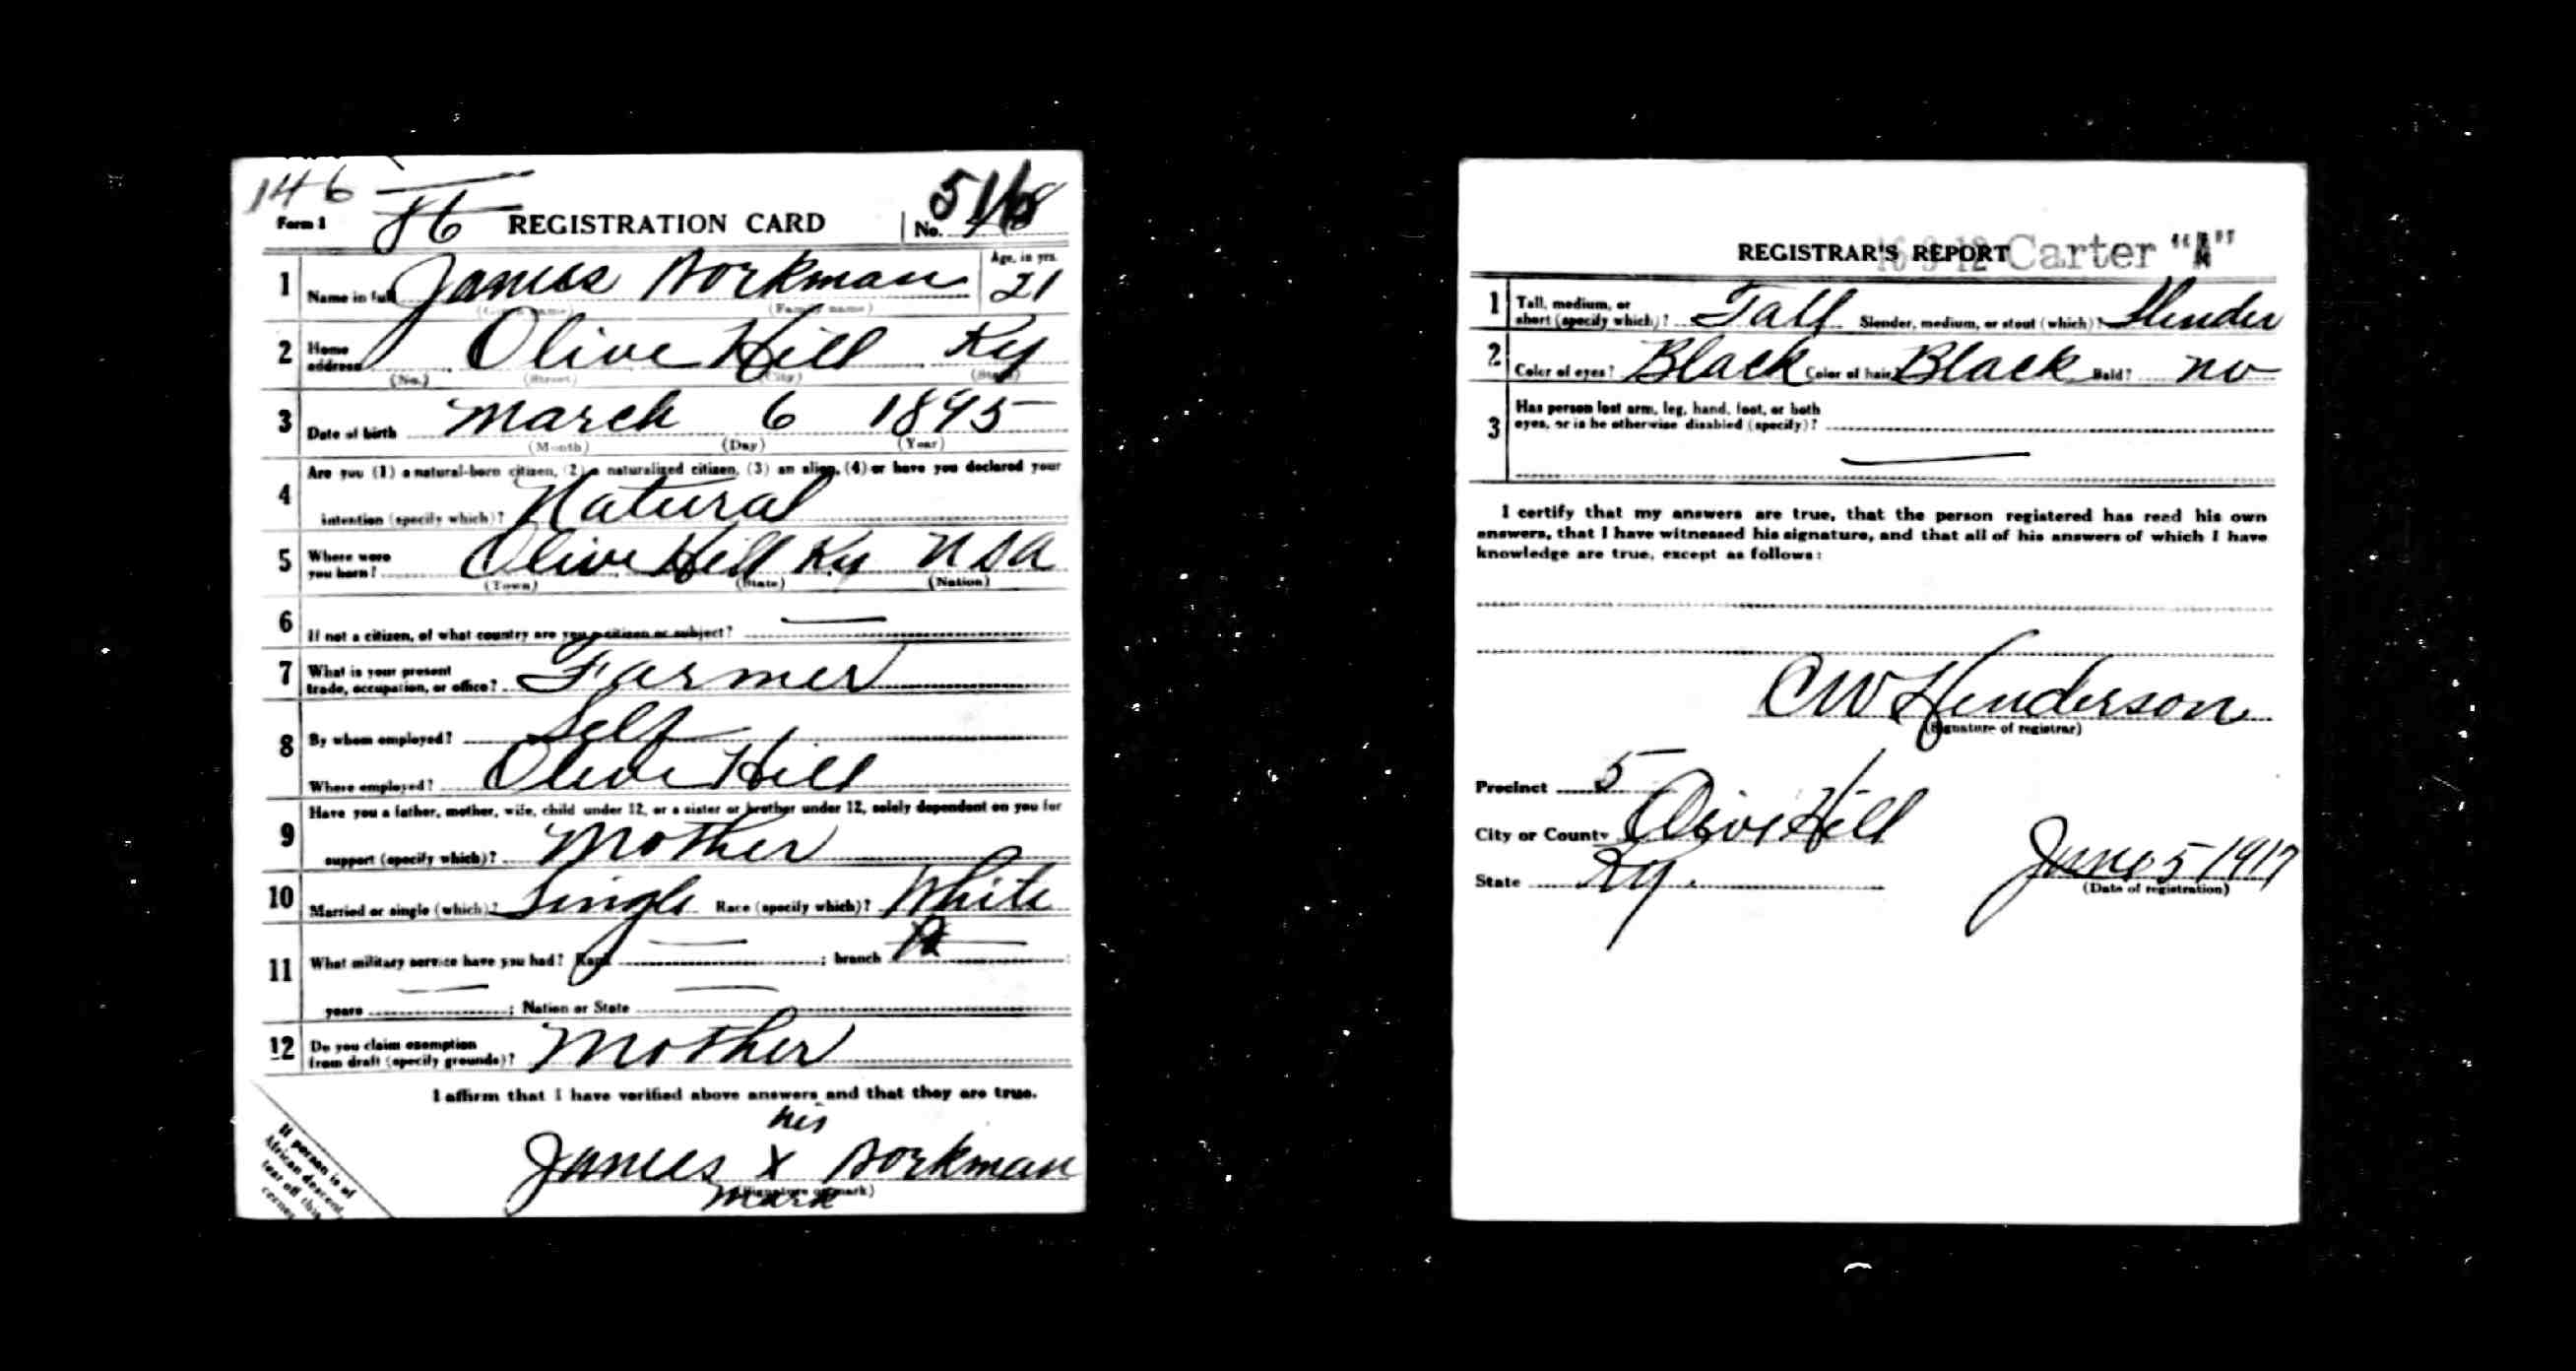 146
Form 1 REGISTRATION CARD No.
1 Name in full James Workman Age, in yrs. 21
(Given name) (Family name)
2 Home address Olive Hill Ky
(No.) (Street) (City) (State)
3 Date of birth March 6 1895
(Month) (Day) (Year)
Are you (1) a natural-born citizen, (2) a naturalized citizen, (3) an alien, (4) or have you declared your
4 intention (specify which)? Natural
5 Where were you born? Olive Hill Ky USA
(Town) (State) (Nation)
6 If not a citizen, of what country are you a citizen or subject? —
7 What is your present trade, occupation, or office? Farmer
8 By whom employed? Self
Where employed? Olive Hill
Have you a father, mother, wife, child under 12, or a sister or brother under 12, solely dependent on you for
9 support (specify which)? Mother
10 Married or single (which)? Single Race (specify which)? White
11 What military service have you had? Rank — ; branch —
years — ; Nation or State —
12 Do you claim exemption from draft (specify grounds)? Mother
I affirm that I have verified above answers and that they are true.
his
James X Workman
(Signature or mark)
mark
If person is of
African descent,
tear off this
corner
REGISTRAR'S REPORT Carter "A"
1 Tall, medium, or short (specify which)? Tall Slender, medium, or stout (which)? Slender
2 Color of eyes? Black Color of hair? Black Bald? no
3 Has person lost arm, leg, hand, foot, or both
eyes, or is he otherwise disabled (specify)?
—
I certify that my answers are true, that the person registered has read his own
answers, that I have witnessed his signature, and that all of his answers of which I have
knowledge are true, except as follows:
CW Henderson
(Signature of registrar)
Precinct 5
City or County Olive Hill
State Ky. June 5 1917
(Date of registration)